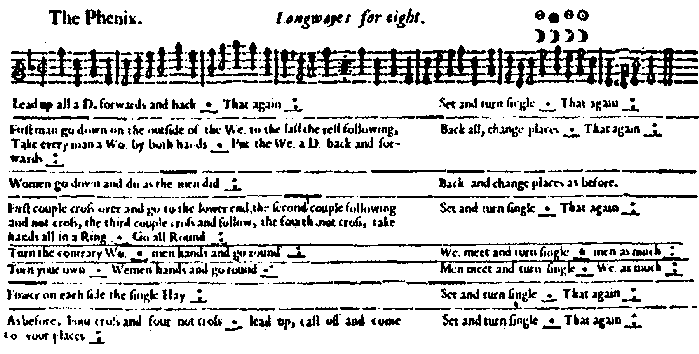 The Phenix. Longwayes for eight.
Lead up all a D. forwards and back . That again : Set and turn single . That again :
First man go down on the outside of the We. to the last the rest following, Back all, change places . That again :
Take every man a Wo. by both hands . Put the We. a D. back and for-
wards :
Women go down and do as the men did : Back and change places as before.
First couple cross over and go to the lower end, the second couple following Set and turn single . That again :
and not cross, the third couple cross and follow, the fourth not cross, take
hands all in a Ring . Go all Round :
Turn the contrary Wo. . men hands and go round : We. meet and turn single . men as much :
Turn your own . Women hands and go round : Men meet and turn single . We. as much :
Foure on each side the single Hay : Set and turn single . That again :
As before, foure cross and four not cross . lead up, cast off and come Set and turn single . That again :
to your places :